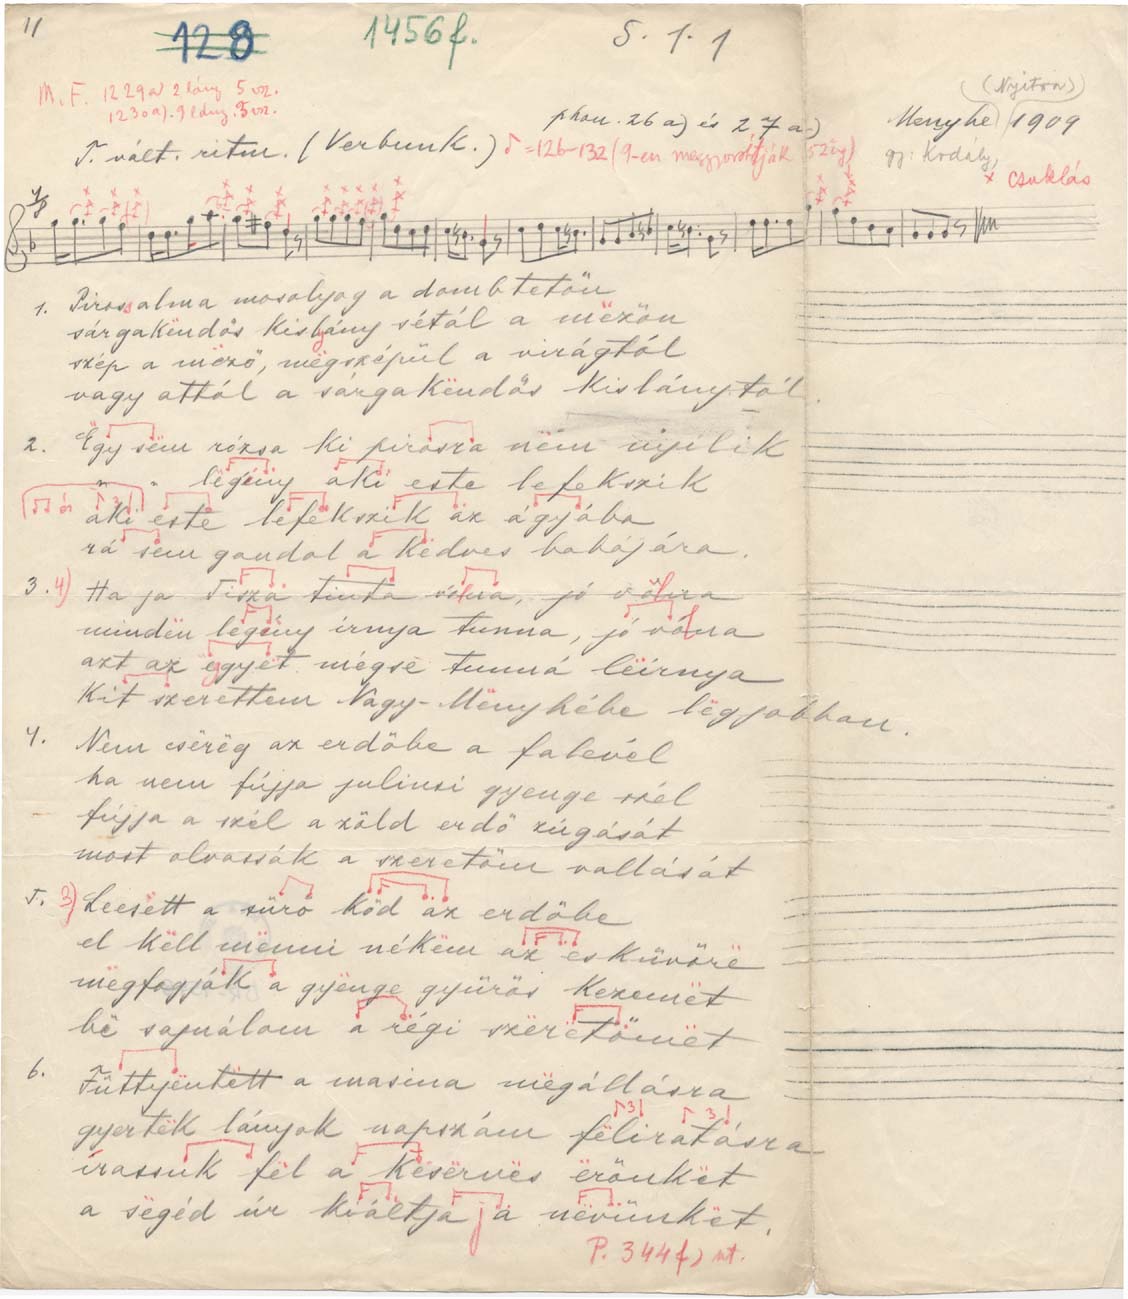 11
128
1456f.
5. 1. 1
M. F. 1229a 2 lány 5 vsz.
1230a). 9 lány. 5 vsz.
(Nyitra)
phon. 26 a) és 27 a)
Menyhe 1909
T. vált. ritm. (Verbunk.) ♪=126-132 (9-en meggyorsítják
gy: Kodály,
x csuklás
4/8
1. Pirossalma mosolyog a dombtetőn
sárgakëndős kislyány sétál a mëzőn
szép a mëző, mëgszépül a virágtól
vagy attól a sárgakëndős kislánytól.
2. Ëgy sëm rózsa ki pirosra nëm nyilik
" " lëgény aki este lefekszik
aki este lefekszik az ágyába
rá sem gondol a kedves babájára.
3. 4) Ha ja Tisza tinta vólna, jó vólna
mindën lëgény írnya tunna, jó vólna
azt az ëgyet mégse tunná lëírnya
Kit szerettem Nagy-Mënyhébe lëgjobban.
4. Nem csërëg az erdőbe a falevél
ha nem fújja juliusi gyenge szél
fújja a szél a zöld erdő zúgását
most olvassák a szeretőm vallását
5. 3) Leesëtt a sürő köd az erdőbe
el këll mënni nékëm az esküvőrë
mëgfogják a gyënge gyürűs kezemët
bë sajnálom a régi szërëtőmët
6. Füttyëntëtt a masina mëgállásra
gyertëk lányok napszám fëliratásra
írassuk fël a kesërvës ërőnkët
a sëgéd úr kiáltja ja nëvünkët.
P. 344f) nt.